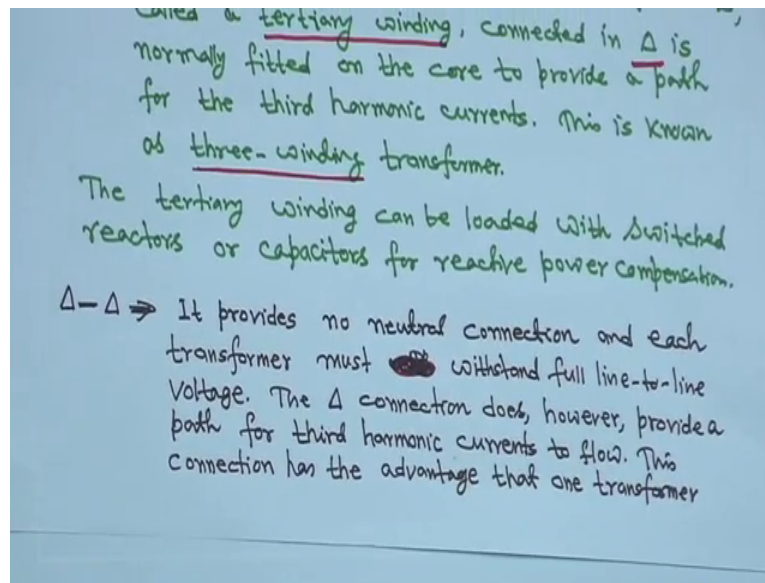 called a tertiary winding, connected in Δ is
normally fitted on the core to provide a path
for the third harmonic currents. This is known
as three-winding transformer.
The tertiary winding can be loaded with switched
reactors or capacitors for reactive power compensation.
Δ-Δ → It provides no neutral connection and each
transformer must withstand full line-to-line
voltage. The Δ connection does, however, provide a
path for third harmonic currents to flow. This
connection has the advantage that one transformer